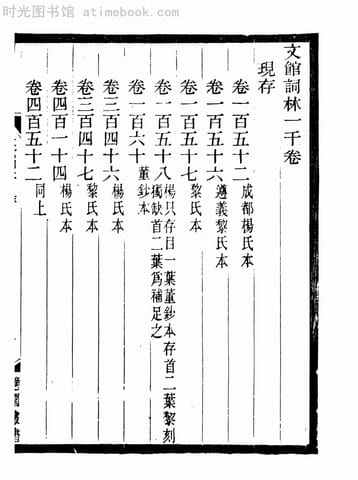 时光图书馆 atimebook.com
文館詞林一千卷
現存
卷一百五十二成都楊氏本
卷一百五十六遵義黎氏本
卷一百五十七黎氏本
卷一百五十八楊只存目一葉董鈔本存首二葉黎刻
獨缺首二葉爲補足之
卷一百六十董鈔本
卷三百四十六楊氏本
卷三百四十七黎氏本
卷四百一十四楊氏本
卷四百五十二同上
叢書